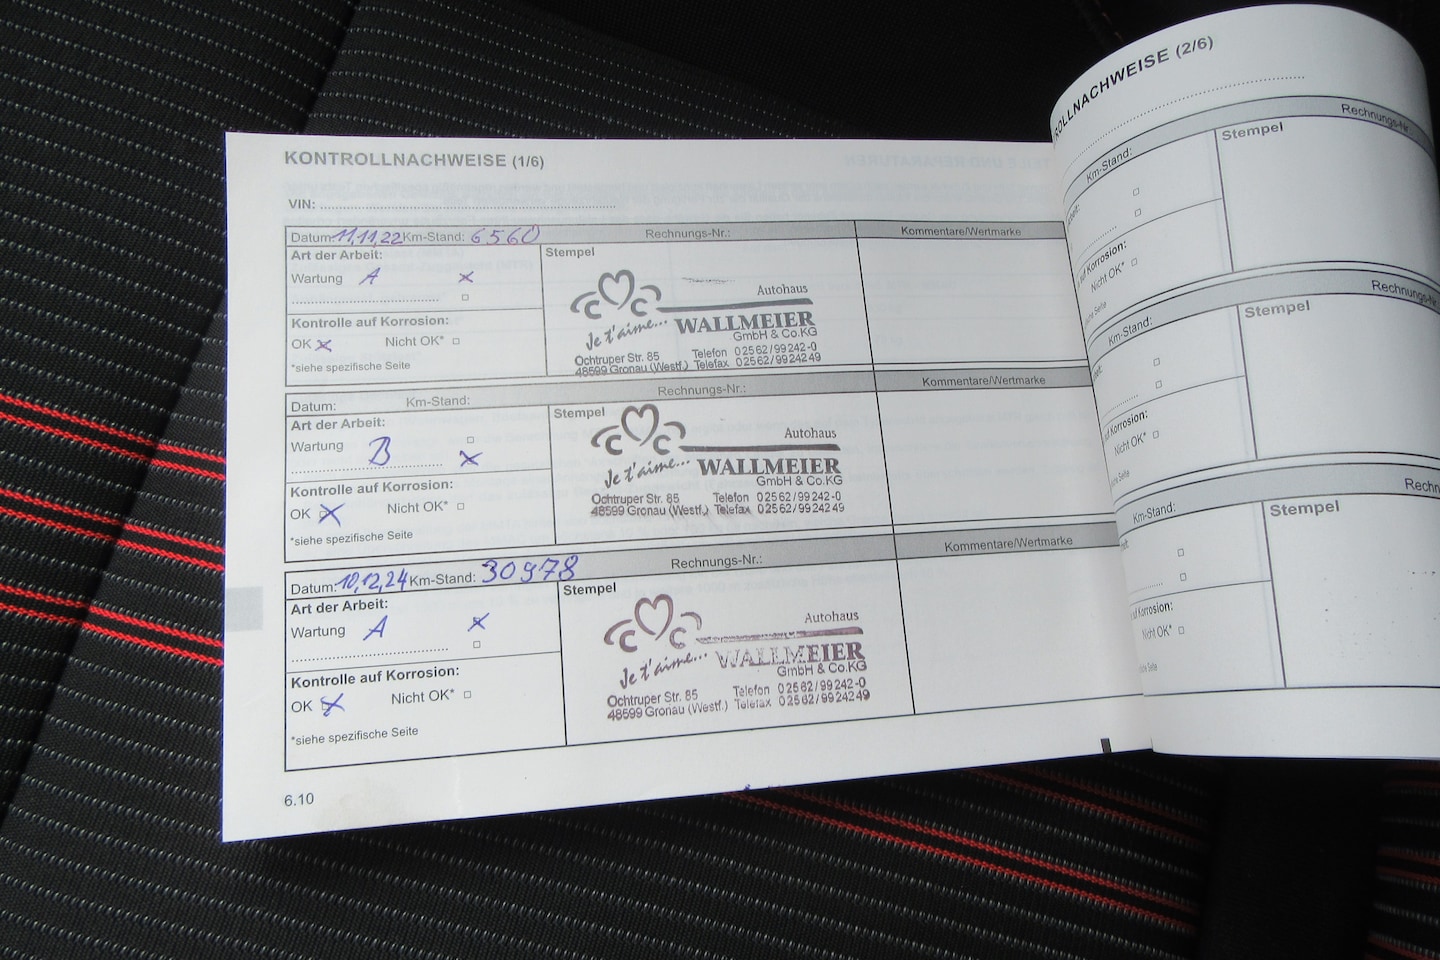 KONTROLLNACHWEISE (1/6)
VIN:
Datum: 11,11,22 Km-Stand: 6560 Rechnungs-Nr.: Kommentare/Wertmarke
Art der Arbeit: Stempel
Wartung A
Kontrolle auf Korrosion:
OK Nicht OK*
*siehe spezifische Seite
Autohaus
Je t'aime... WALLMEIER
GmbH & Co.KG
Ochtruper Str. 85 Telefon 02562/99242-0
48599 Gronau (Westf.) Telefax 02562/9924249
Datum: Km-Stand: Rechnungs-Nr.: Kommentare/Wertmarke
Art der Arbeit: Stempel
Wartung B
Kontrolle auf Korrosion:
OK Nicht OK*
*siehe spezifische Seite
Autohaus
Je t'aime... WALLMEIER
GmbH & Co.KG
Ochtruper Str. 85 Telefon 02562/99242-0
48599 Gronau (Westf.) Telefax 02562/9924249
Datum: 10,12,24 Km-Stand: 30978 Rechnungs-Nr.: Kommentare/Wertmarke
Art der Arbeit: Stempel
Wartung A
Kontrolle auf Korrosion:
OK Nicht OK*
*siehe spezifische Seite
Autohaus
Je t'aime... WALLMEIER
GmbH & Co.KG
Ochtruper Str. 85 Telefon 02562/99242-0
48599 Gronau (Westf.) Telefax 02562/9924249
6.10
ROLLNACHWEISE (2/6)
Km-Stand: Rechnungs-Nr.
Stempel
auf Korrosion:
Nicht OK*
Seite
Km-Stand: Rechnungs-Nr.
Stempel
auf Korrosion:
Nicht OK*
Seite
Km-Stand: Rechn
Stempel
auf Korrosion:
Nicht OK*
Seite